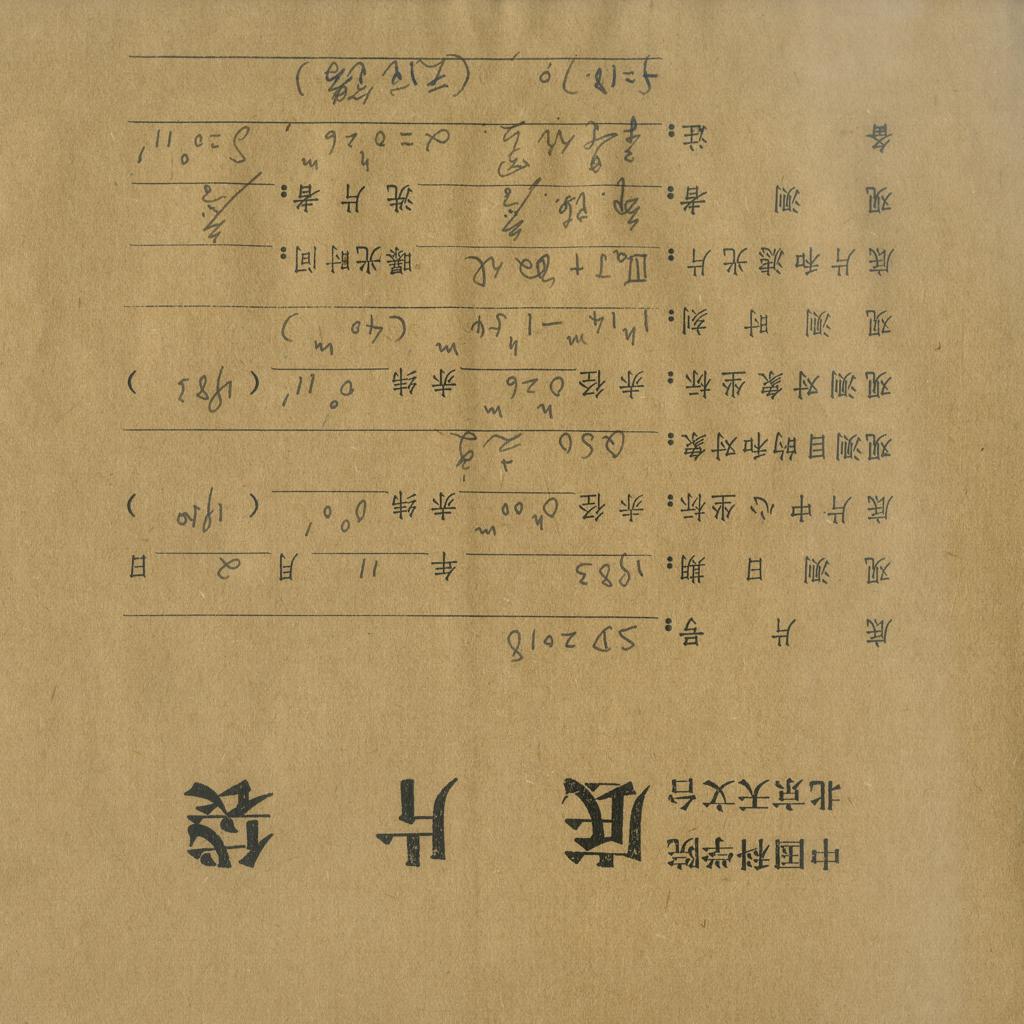 中国科学院
北京天文台
底片袋
底片号：SD 2018
观测日期：1983年11月2日
底片中心坐标：赤径0h00m赤纬0°0′(1950)
观测目的和对象：QSO
观测对象坐标：赤径0h26m赤纬0°11′(1983)
观测时刻：1h14m—1h54m (40m)
底片和滤光片：ⅢaJ+ 曝光时间：
观测者： 洗片者：
备注： α=0h26m, δ=0°11′
f=18.)0,